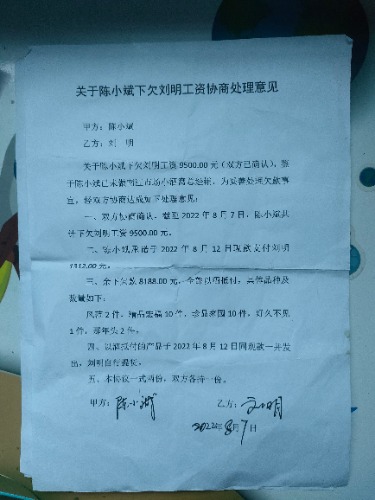 关于陈小斌下欠刘明工资协商处理意见
甲方：陈小斌
乙方：刘 明
关于陈小斌下欠刘明工资 9500.00 元（双方已确认），鉴
于陈小斌已未做 市场小酒窝总经销，为妥善处理欠款事
宜，经双方协商达成如下处理意见：
一、双方协商确认，截至 2022 年 8 月 7 日，陈小斌共
计下欠刘明工资 9500.00 元。
二、陈小斌承诺于 2022 年 8 月 12 日现款支付刘明
1312.00 元。
三、余下欠款 8188.00 元，全部以酒抵付，具体品种及
数量如下：
2 件，精品 10 件，珍品 10 件，好久不见
1 件，那年头 2 件。
四、以酒抵付的产品于 2022 年 8 月 12 日同现款一并发
出，刘明自行提货。
五、本协议一式两份，双方各持一份。
甲方：陈小斌 乙方：刘明
2022年8月7日